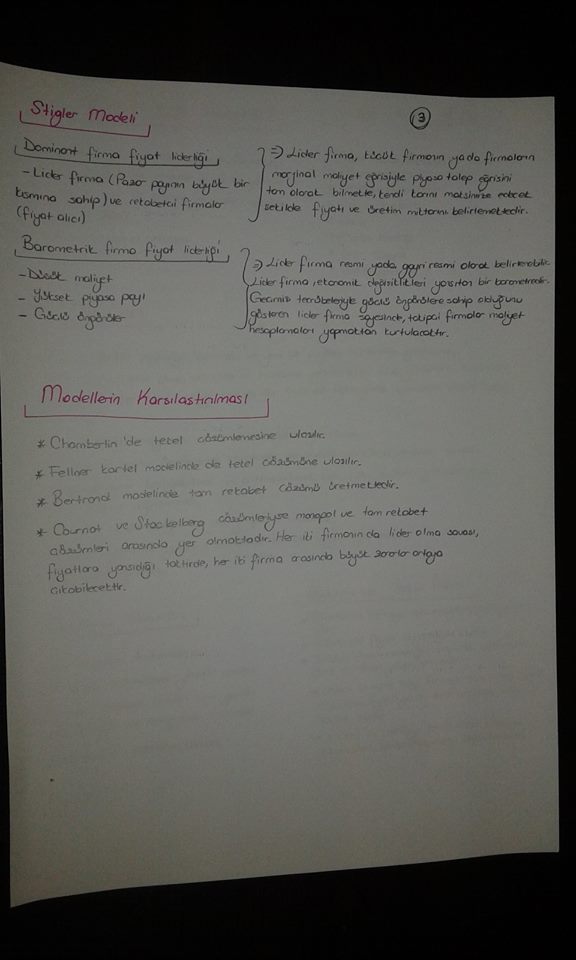 Stigler Modeli
3
Dominant firma fiyat liderliği
- Lider firma (Pazar payının büyük bir
kısmına sahip) ve rekabetçi firmalar
(fiyat alıcı)
=> Lider firma, küçük firmanın yada firmaların
marjinal maliyet eğrisiyle piyasa talep eğrisini
tam olarak bilmekte, kendi karını maksimize edecek
şekilde fiyatı ve üretim miktarını belirlemektedir.
Barometrik firma fiyat liderliği
- Düşük maliyet
- Yüksek piyasa payı
- Güçlü öngörüler
=> Lider firma resmi yada gayri resmi olarak belirlenebilir.
Lider firma, ekonomik değişiklikleri yansıtan bir barometredir.
Geçmiş tecrübeleriyle güçlü öngörülere sahip olduğunu
gösteren lider firma sayesinde, takipçi firmalar maliyet
hesaplamaları yapmaktan kurtulacaktır.
Modellerin Karşılaştırılması
* Chamberlin'de tekel çözümlemesine ulaşılır.
* Fellner kartel modelinde de tekel çözümüne ulaşılır.
* Bertrand modelinde tam rekabet çözümü üretmektedir.
* Cournot ve Stackelberg çözümleriyse monopol ve tam rekabet
çözümleri arasında yer almaktadır. Her iki firmanın da lider olma savaşı,
fiyatlara yansıdığı taktirde, her iki firma arasında büyük zararlar ortaya
çıkabilecektir.